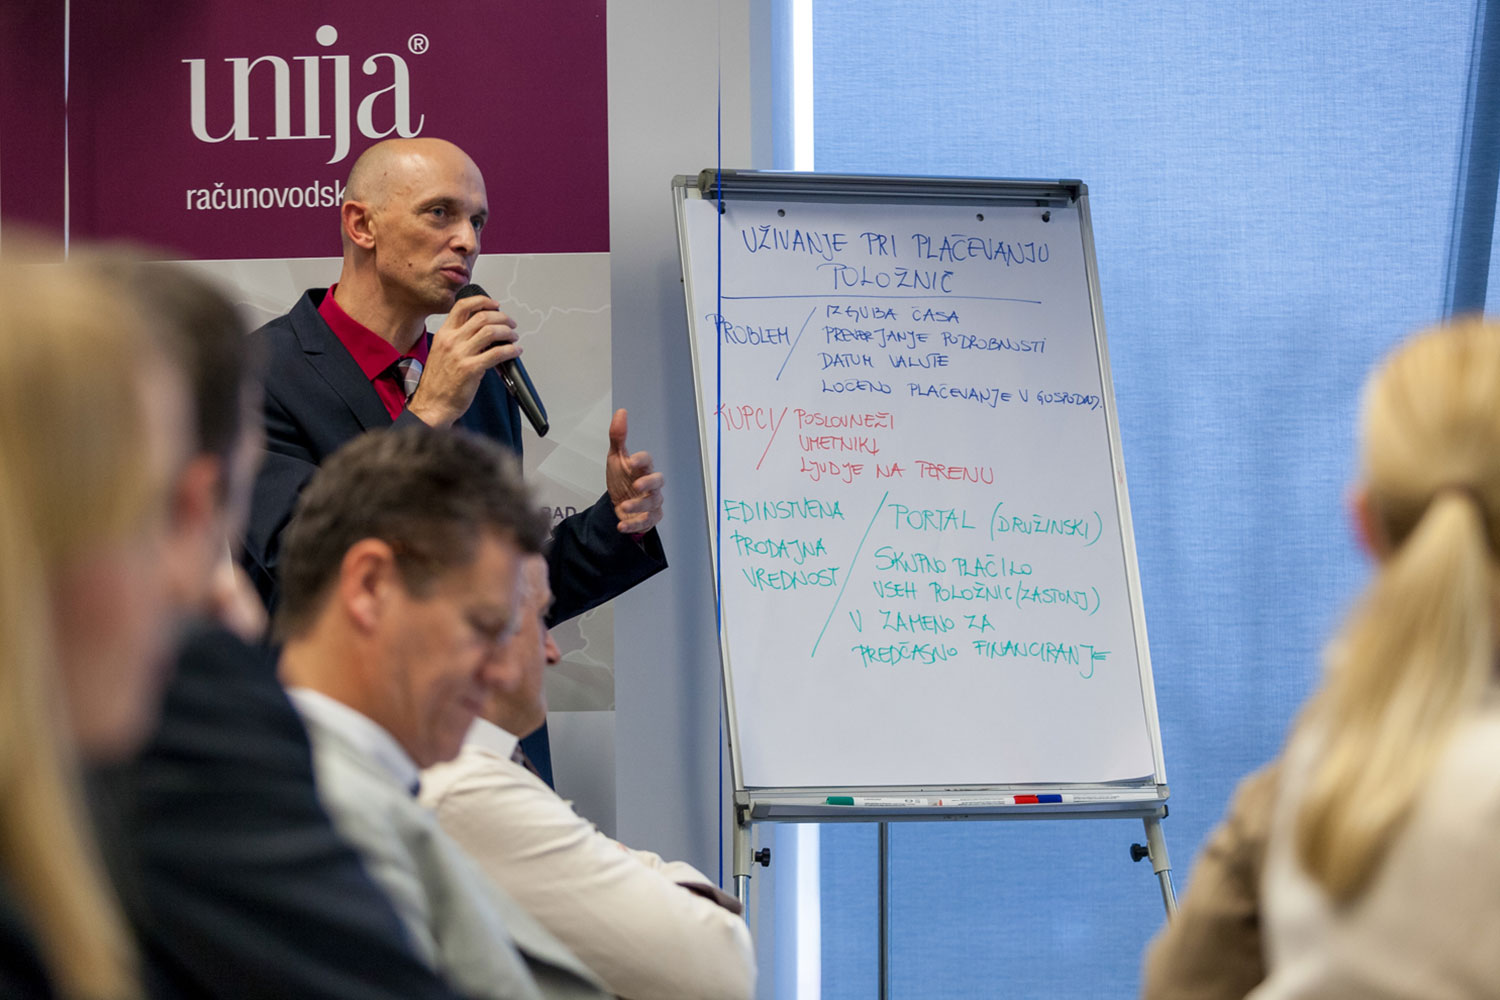 unija®
računovodsk
UŽIVANJE PRI PLAČEVANJU
POLOŽNIC
PROBLEM / IZGUBA ČASA
PREVERJANJE PODROBNOSTI
DATUM VALUTE
LOČENO PLAČEVANJE V GOSPODAD.
KUPCI / POSLOVNEŽI
UMETNIKI
LJUDJE NA TERENU
EDINSTVENA
PRODAJNA
VREDNOST / PORTAL (DRUŽINSKI)
SKUPNO PLAČILO
VSEH POLOŽNIC (ZASTONJ)
V ZAMENO ZA
PREDČASNO FINANCIRANJE